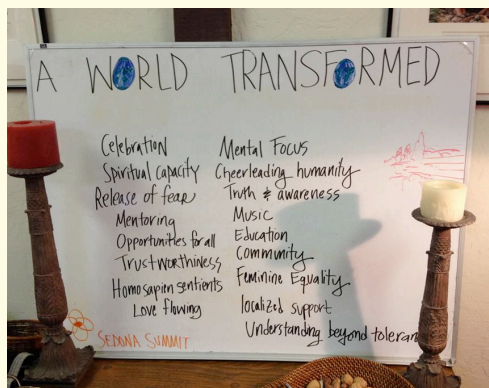 A WORLD TRANSFORMED
Celebration
Spiritual capacity
Release of fear
Mentoring
Opportunities for all
Trustworthiness
Homosapien sentients
Love flowing
Mental Focus
Cheerleading humanity
Truth & awareness
Music
Education
Community
Feminine Equality
localized support
Understanding beyond toleran
SEDONA SUMMIT